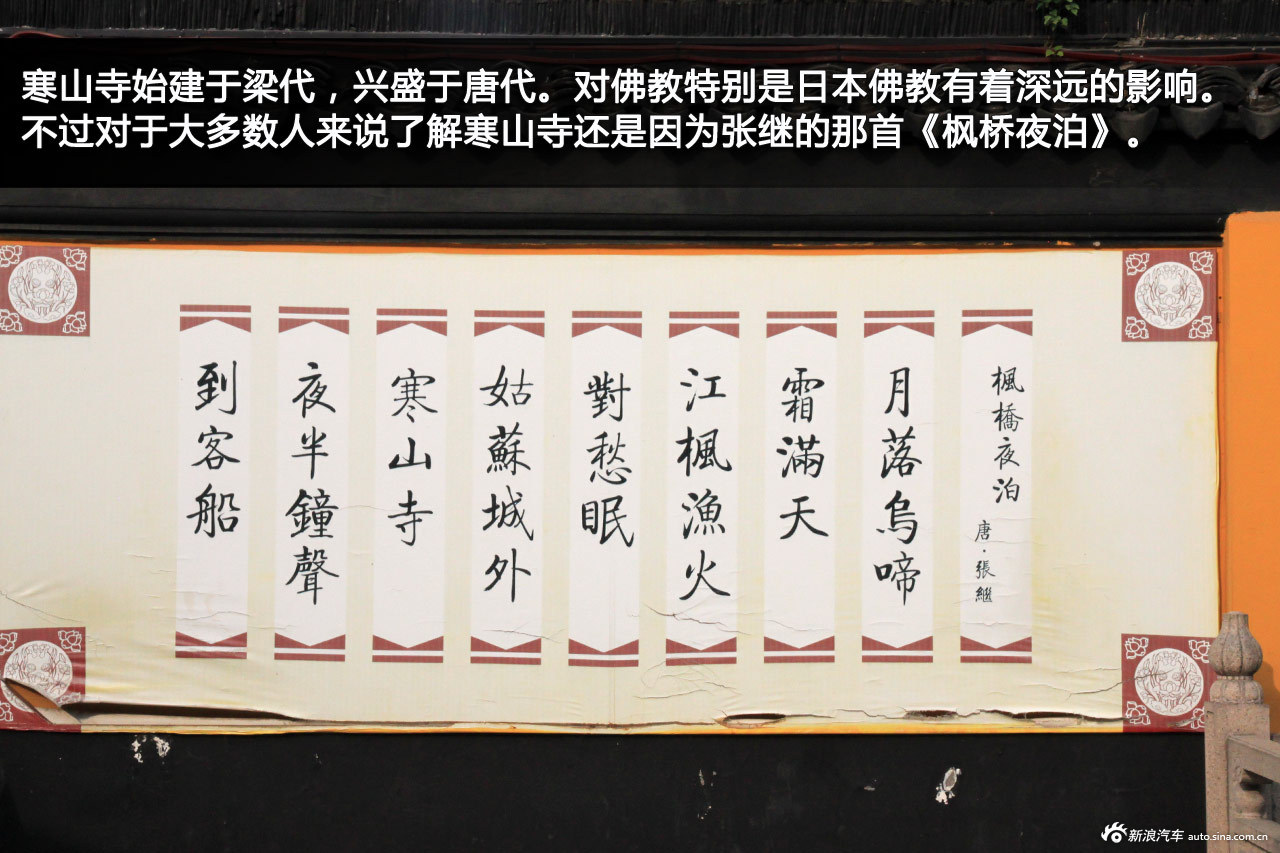 寒山寺始建于梁代，兴盛于唐代。对佛教特别是日本佛教有着深远的影响。
不过对于大多数人来说了解寒山寺还是因为张继的那首《枫桥夜泊》。
楓橋夜泊
唐·張繼
月落烏啼
霜滿天
江楓漁火
對愁眠
姑蘇城外
寒山寺
夜半鐘聲
到客船
新浪汽车 auto.sina.com.cn